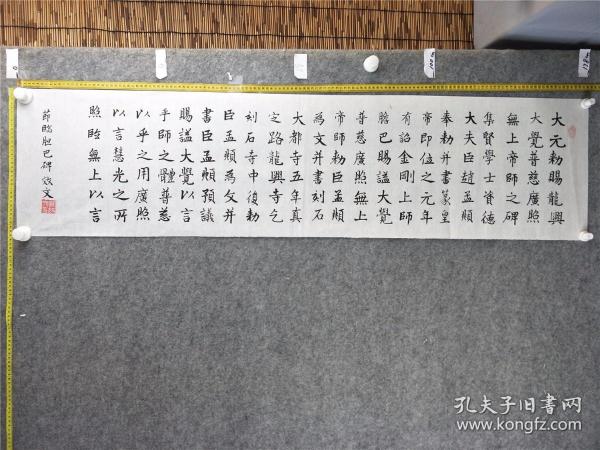 大元勅賜龍興
大覺普慈廣照
無上帝師之碑
集賢學士資德
大夫臣趙孟頫
奉勅并書篆皇
帝即位之元年
有詔金剛上師
膽巴賜謚大覺
普慈廣照無上
帝師勅臣孟頫
為文并書刻石
大都寺五年真
之路龍興寺乞
刻石寺中復勅
臣孟頫為文并
書臣孟頫預議
賜謚大覺以言
乎師之體普慈
以乎之用廣照
以言慧光之所
照臨無上以言
節臨胆巴碑 效文
孔夫子旧書网
www.kongfz.com